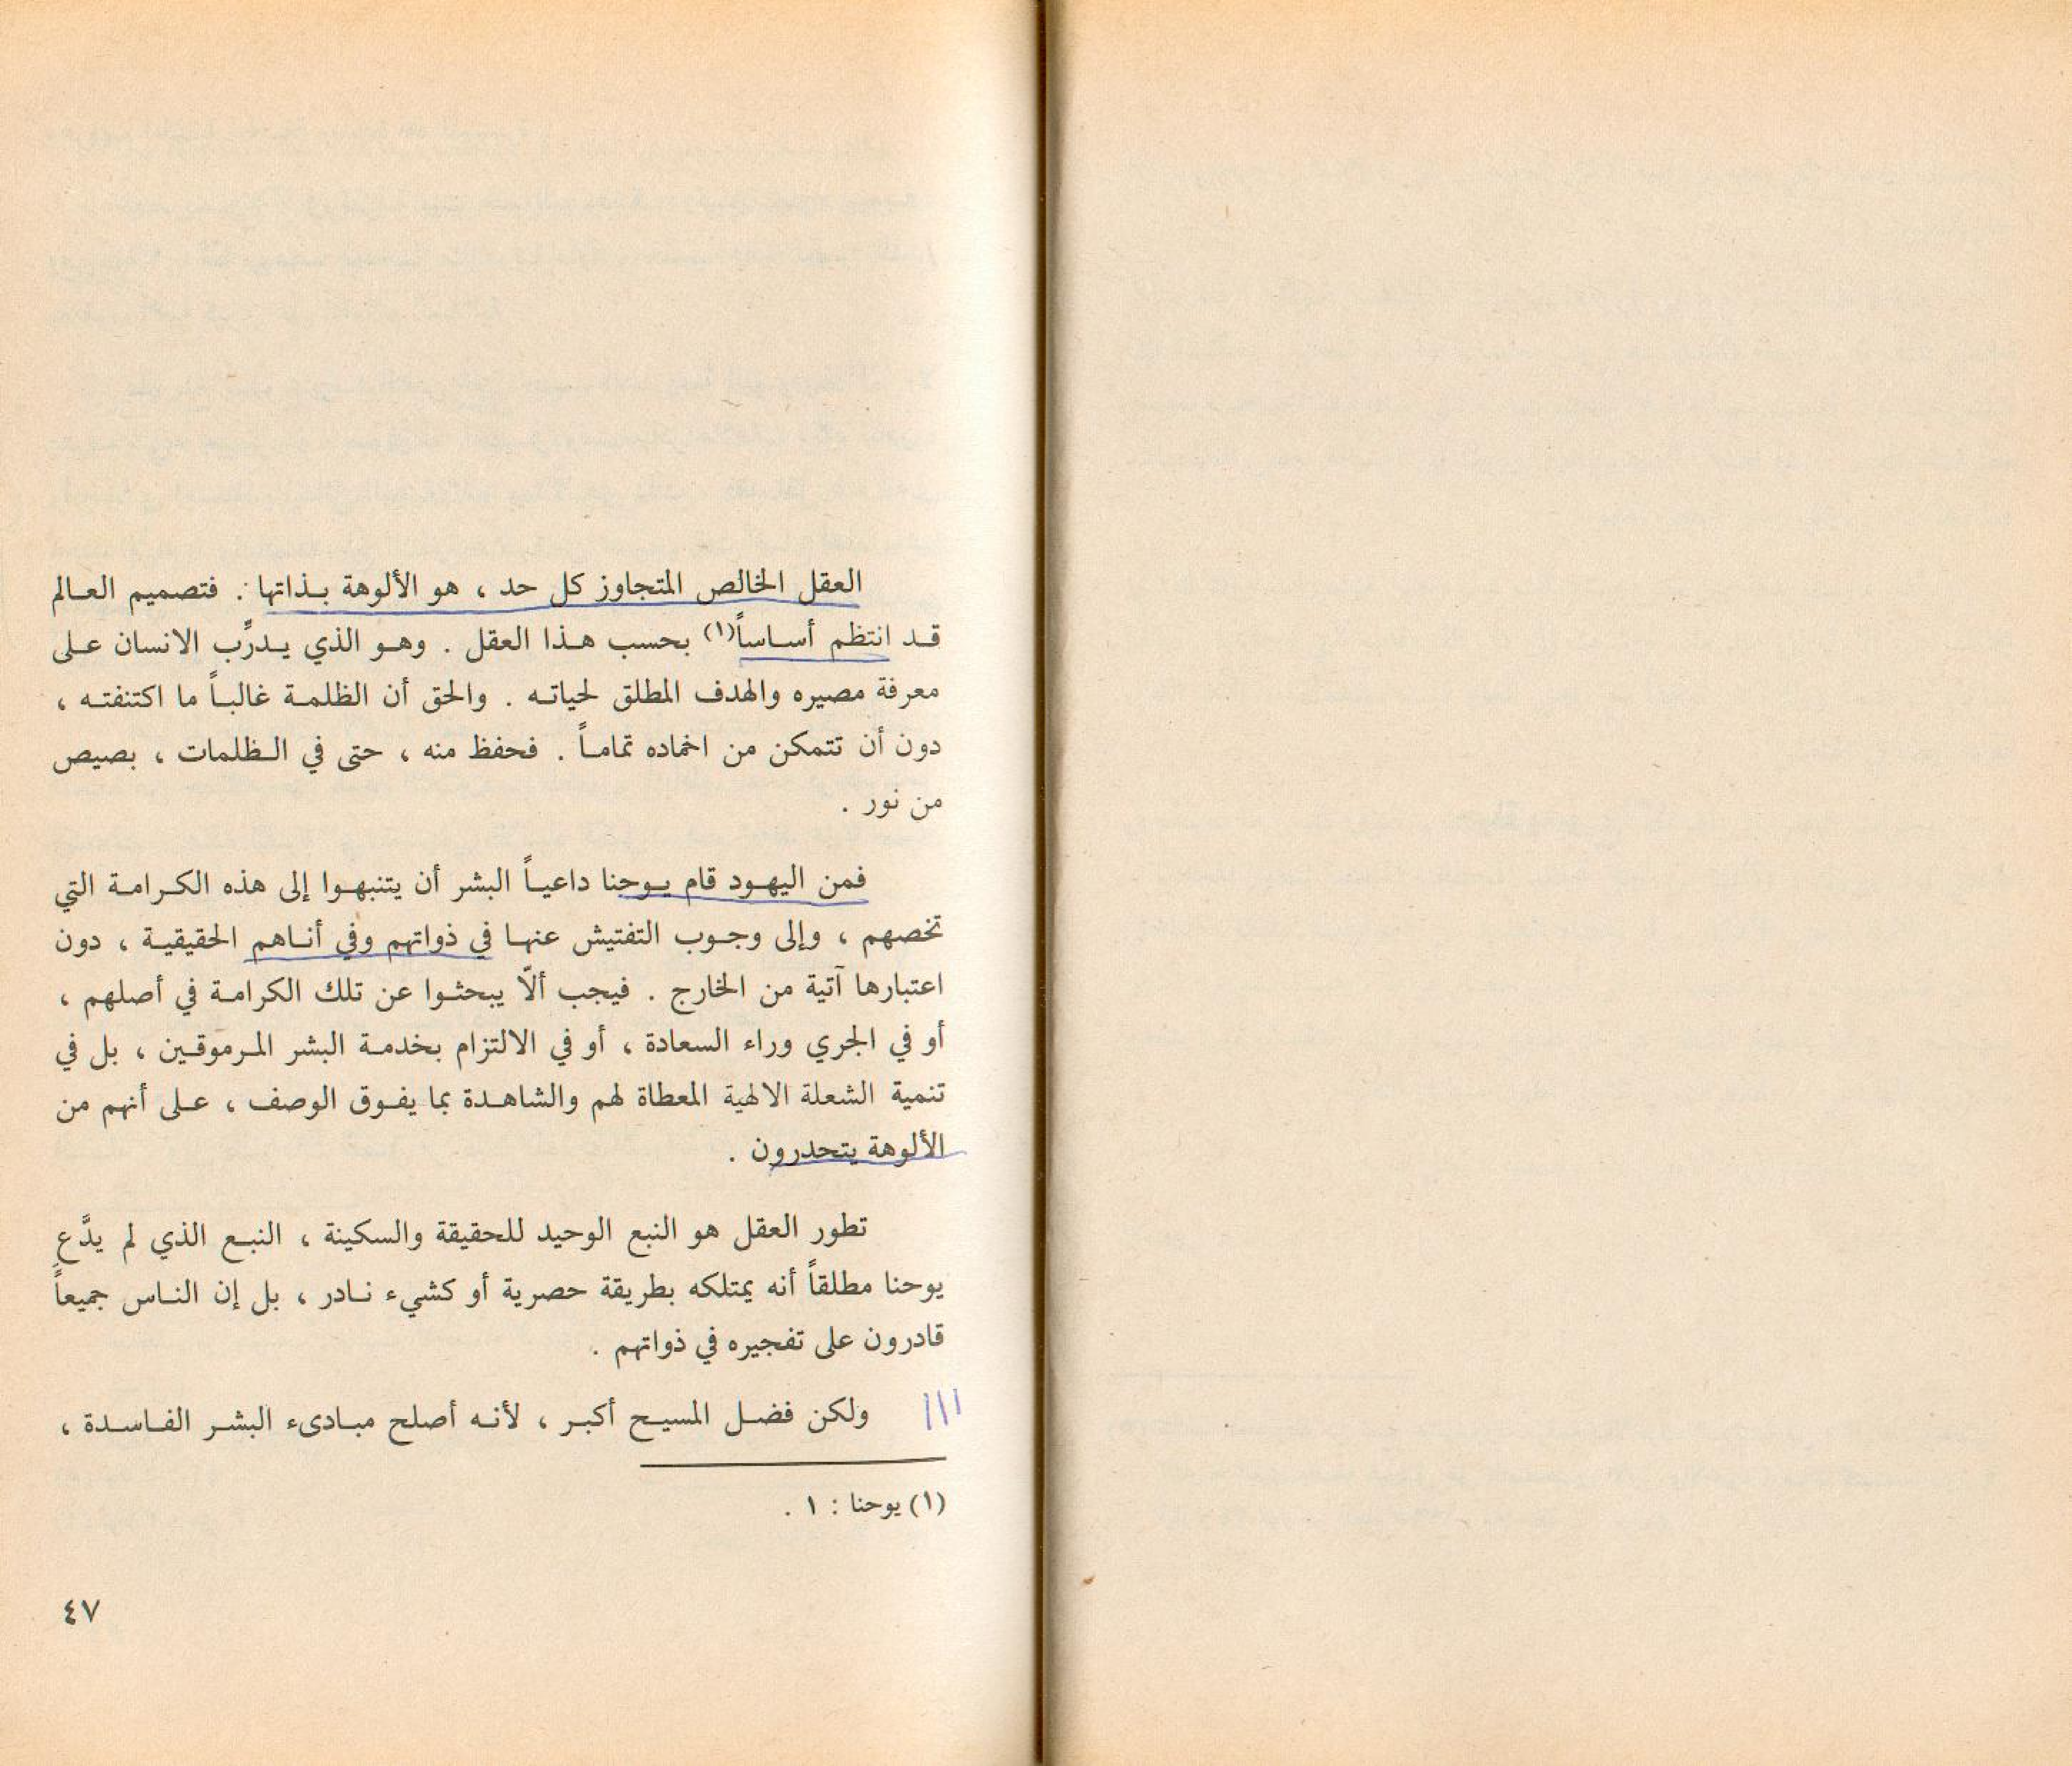 العقل الخالص المتجاوز كل حد ، هو الألوهة بـذاتها . فتصميم العـالم
قـد انتظم أسـاساً(١) بحسب هـذا العقل . وهـو الذي يـدرِّب الانسان عـلى
معرفة مصيره والهدف المطلق لحياتـه . والحق أن الظلمـة غالبـاً ما اكتنفتـه ،
دون أن تتمكن من اخماده تمامـاً . فحفظ منه ، حتى في الـظلمات ، بصيص
من نور .
فمن اليهـود قام يـوحنا داعيـاً البشر أن يتنبهـوا إلى هذه الكـرامـة التي
تخصهم ، وإلى وجـوب التفتيش عنهـا في ذواتهم وفي أنـاهم الحقيقيـة ، دون
اعتبارها آتية من الخارج . فيجب ألّا يبحثـوا عن تلك الكرامـة في أصلهم ،
أو في الجري وراء السعادة ، أو في الالتزام بخدمـة البشر المـرموقـين ، بل في
تنمية الشعلة الالهية المعطاة لهم والشاهـدة بما يفـوق الوصف ، عـلى أنهم من
الألوهة يتحدرون .
تطور العقل هو النبع الوحيد للحقيقة والسكينة ، النبـع الذي لم يدَّعِ
يوحنا مطلقاً أنه يمتلكه بطريقة حصرية أو كشيء نـادر ، بل إن النـاس جميعاً
قادرون على تفجيره في ذواتهم .
ولكن فضـل المسيـح أكبـر ، لأنـه أصلح مبـادىء البشـر الفـاسـدة ،
(١) يوحنا : ١ .
٤٧